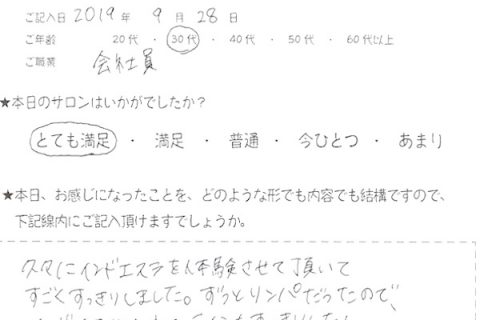 ご記入日 2019年 9月 28日
ご年齢 20代 ・ 30代 ・ 40代 ・ 50代 ・ 60代以上
ご職業 会社員
★本日のサロンはいかがでしたか?
とても満足 ・ 満足 ・ 普通 ・ 今ひとつ ・ あまり
★本日、お感じになったことを、どのような形でも内容でも結構ですので、
下記線内にご記入頂けますでしょうか。
久々にインドエステを体験させて頂いて
すごくすっきりしました。ずっとリンパだったので、